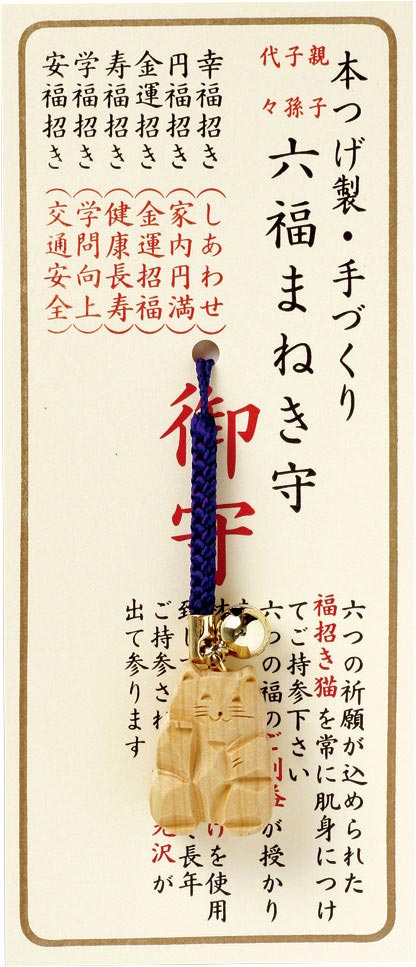 本つげ製・手づくり
親子
子孫
代々
六福まねき守
幸福招き(しあわせ)
円福招き(家内円満)
金運招き(金運招福)
寿福招き(健康長寿)
学福招き(学問向上)
安福招き(交通安全)
御守
六つの祈願が込められた
福招き猫を常に肌身につけ
てご持参下さい
六つの福のご利益が授かり
を使用
致し 長年
ご持参され 光沢が
出て参ります